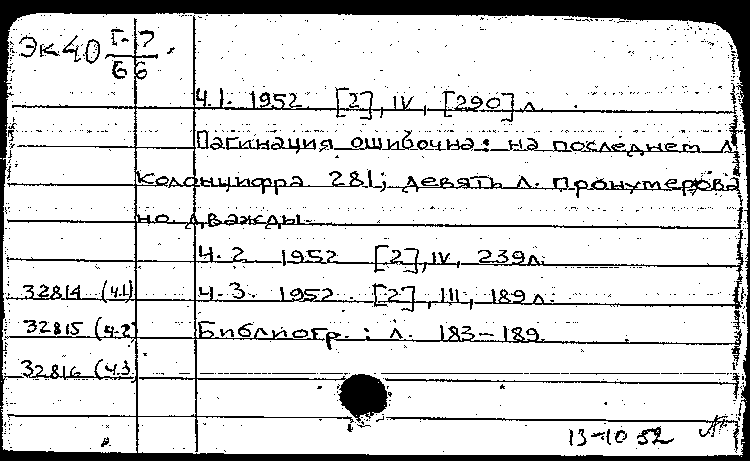 Эк40 Г-7
66
Ч.1. 1952 [2], IV, [290] л.
Пагинация ошибочна: на последнем л.
колонцифра 281; девять л. пронумерова
но дважды.
Ч. 2 1952 [2], IV, 239л.
32814 (ч.1) Ч.3. 1952 [2], III, 189 л.
32815 (ч.2) Библиогр.: л. 183-189.
32816 (ч.3
13-10 52